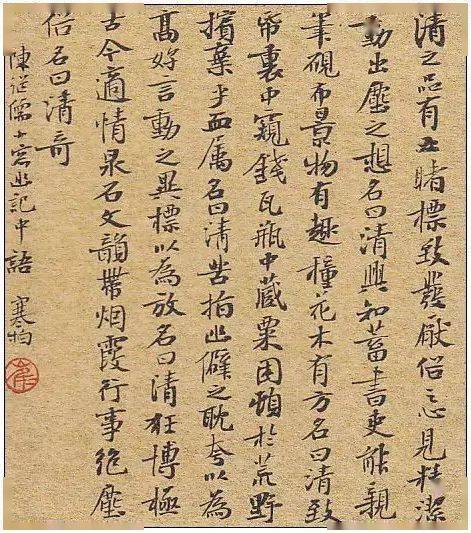 清之品有五睹標致發厭俗之心見精潔
動出塵之想名曰清興知蓄書史能親
筆硯布景物有趣種花木有方名曰清致
帋裹中窺錢瓦瓶中藏粟困頓於荒野
擯棄乎血屬名曰清苦指幽僻之耽夸以為
高好言動之異標以為放名曰清狂博極
古今適情泉石文韻帶烟霞行事絶塵
俗名曰清奇
陳継儒小窓幽記中語 寒柏